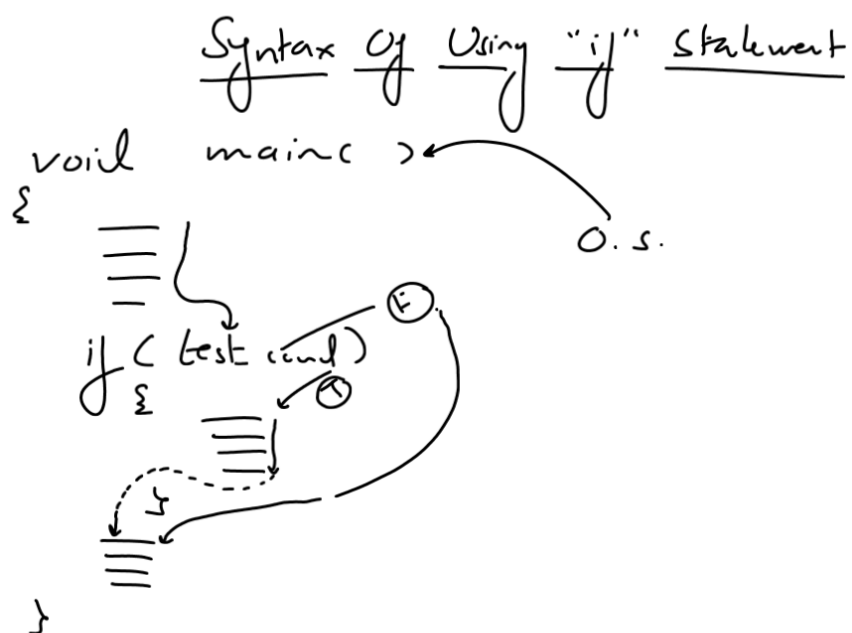 Syntax Of Using "if" Statement
void main( )
{
O.S.
F
if ( test cond )
T
{
}
}